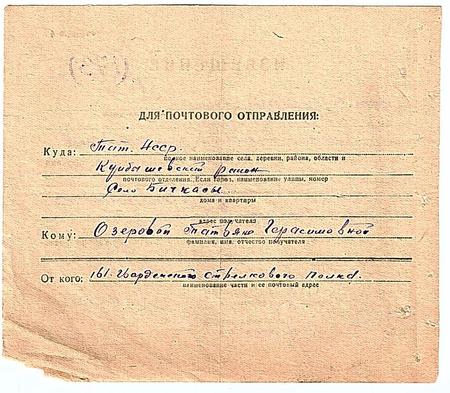 ДЛЯ ПОЧТОВОГО ОТПРАВЛЕНИЯ:
Куда: Тат. Асср.
полное наименование села, деревни, района, области и
Куйбышевский район
почтового отделения. Если город, наименование улицы, номер
Село Биткасы
дома и квартиры
адрес получателя
Кому: Озеровой Татьяне Герасимовной
фамилия, имя, отчество получателя
От кого: 161 Гвардейского Стрелкового Полка
наименование части и ее почтовый адрес